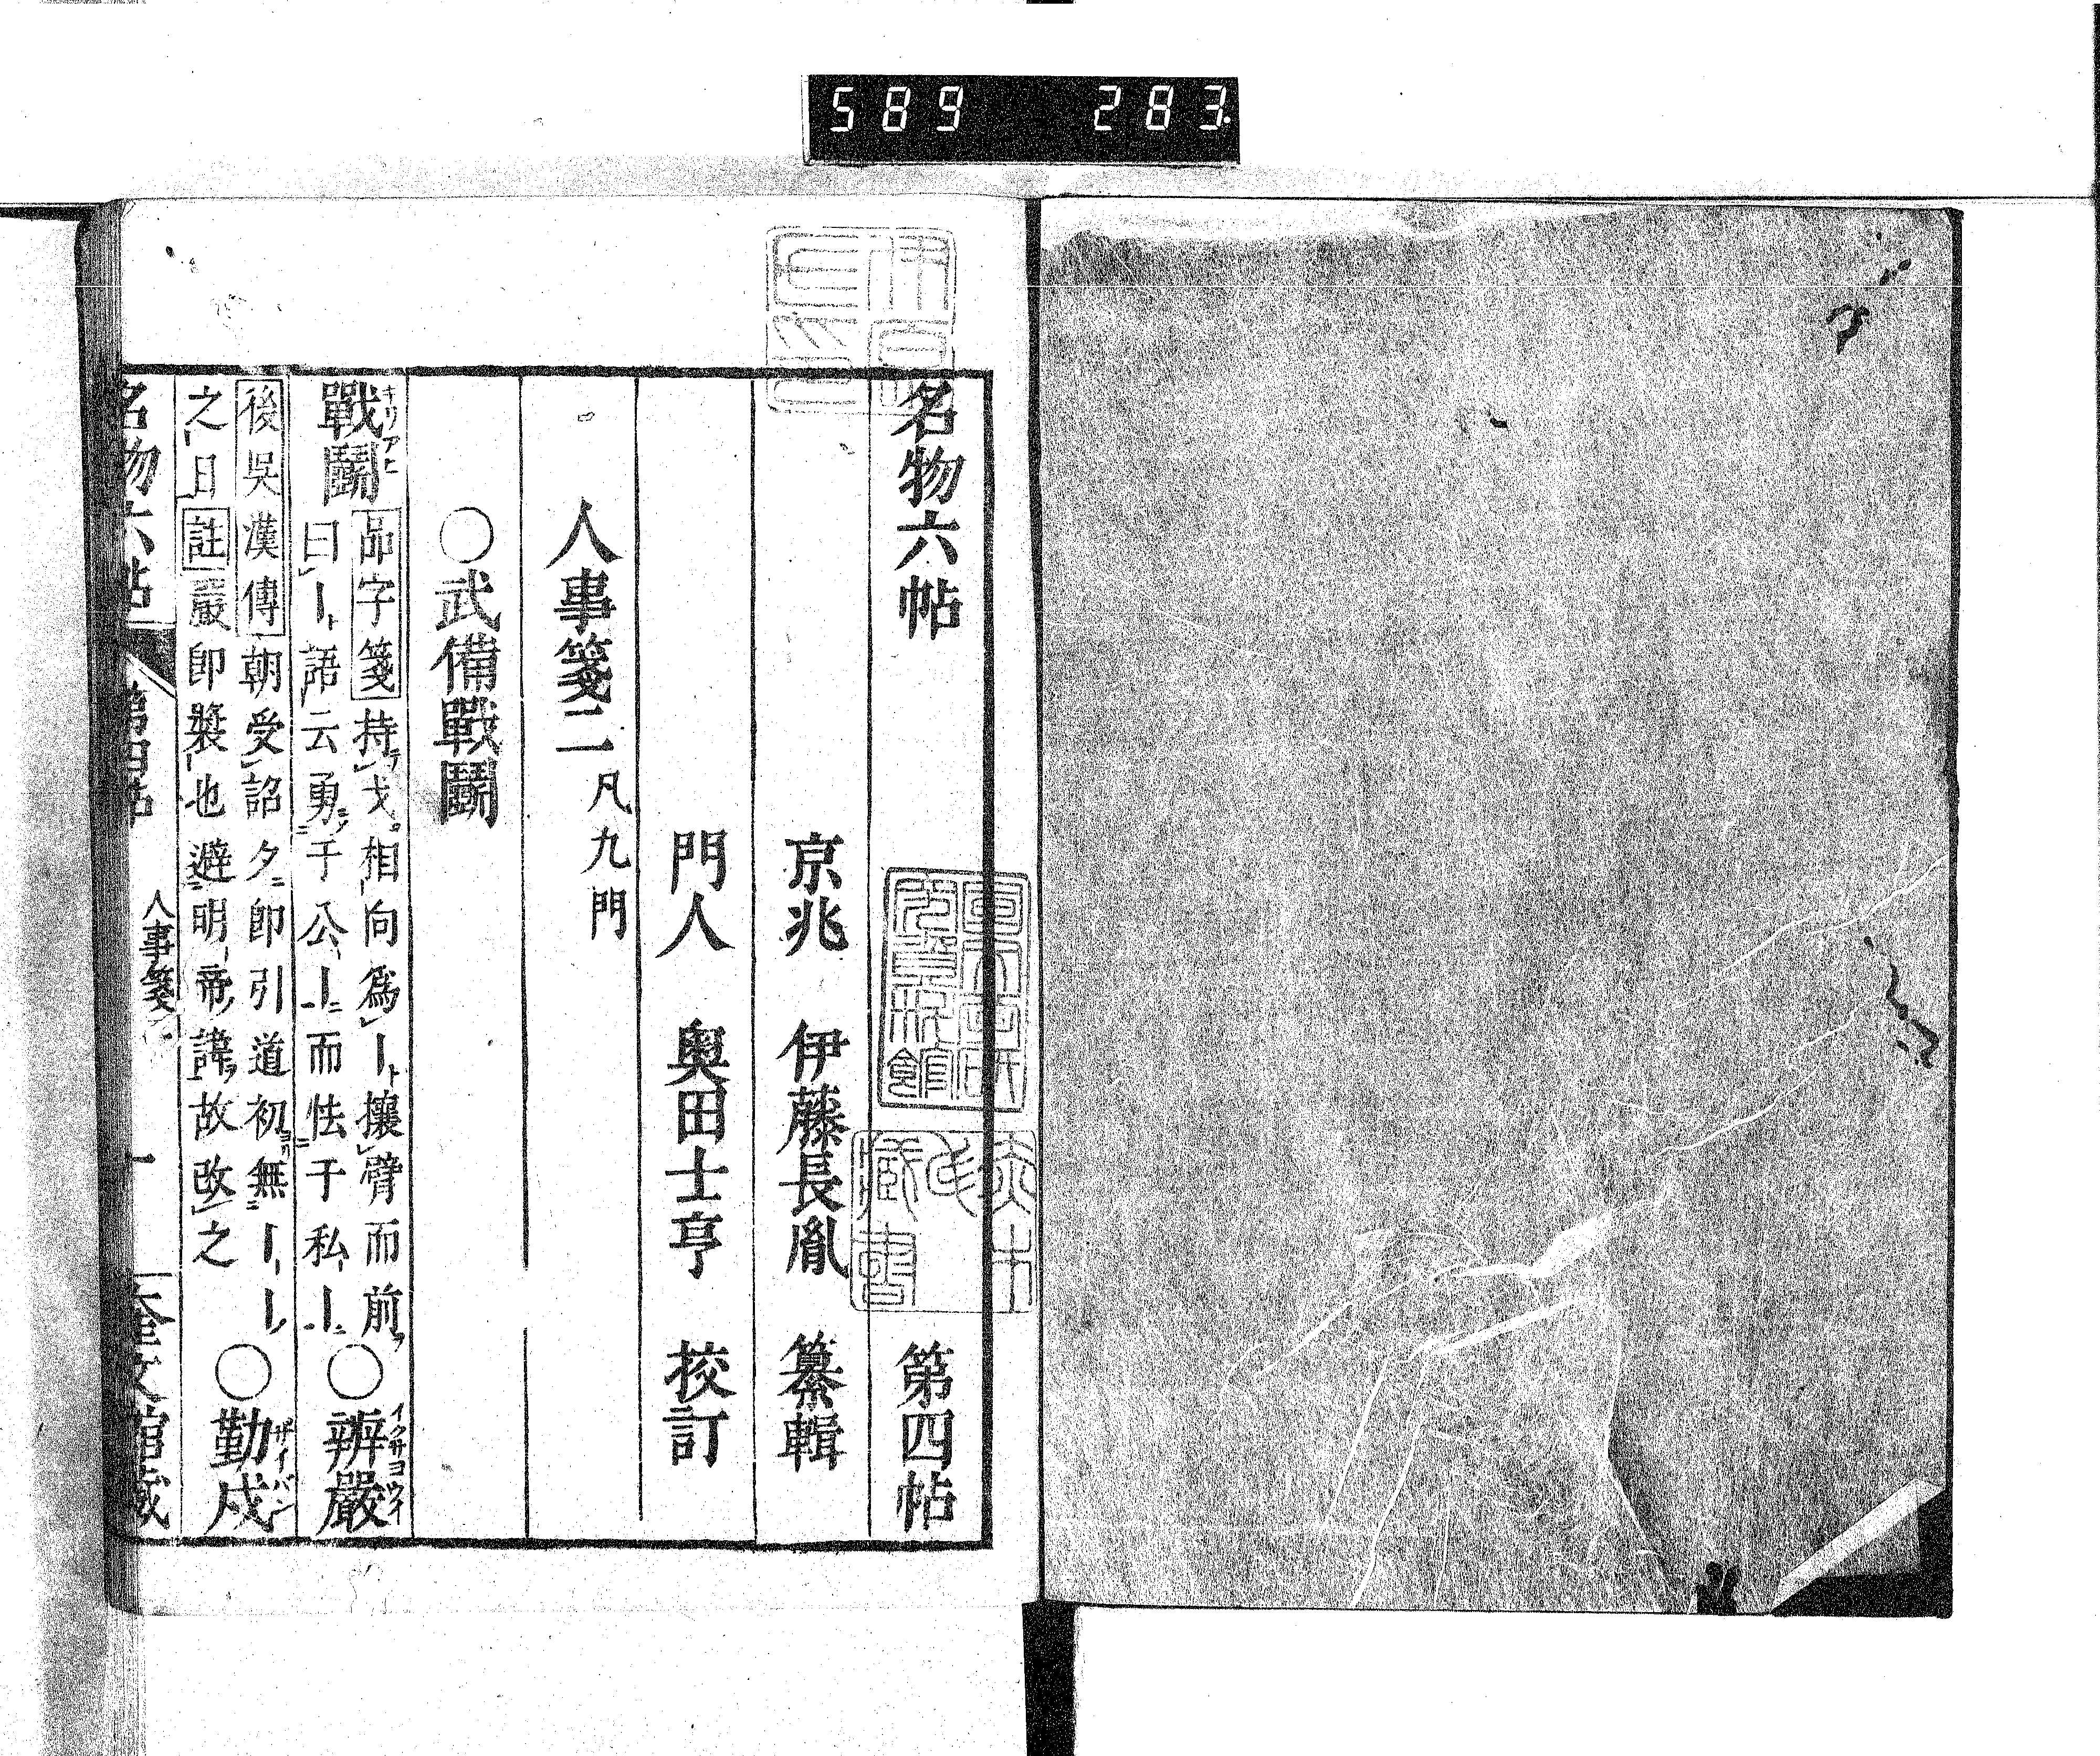 589 283
名物六帖 第四帖
京兆 伊藤長胤 纂輯
門人 奧田士亨 挍訂
人事箋二 凡九門
○武備戰鬭
戰鬭 キリアヒ
品字箋 持戈相向爲｜攘臂而前
曰｜語云勇于公｜而怯于私｜
○辨嚴 イクサヨウイ
後吳漢傳 朝受詔夕即引道初無｜｜
之日 註 嚴即裝也避明帝諱故改之
○勤戍 ザイバン
名物六帖 第四帖 人事箋二 一 奎文館藏